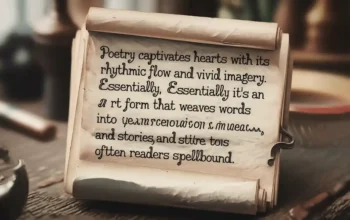 Poetry captivates hearts with its
rhythmic flow and vivid imagery.
Essentially, Essentially it's an
a rt form that weaves words
into
and stories, and
oftten readers spellbound.